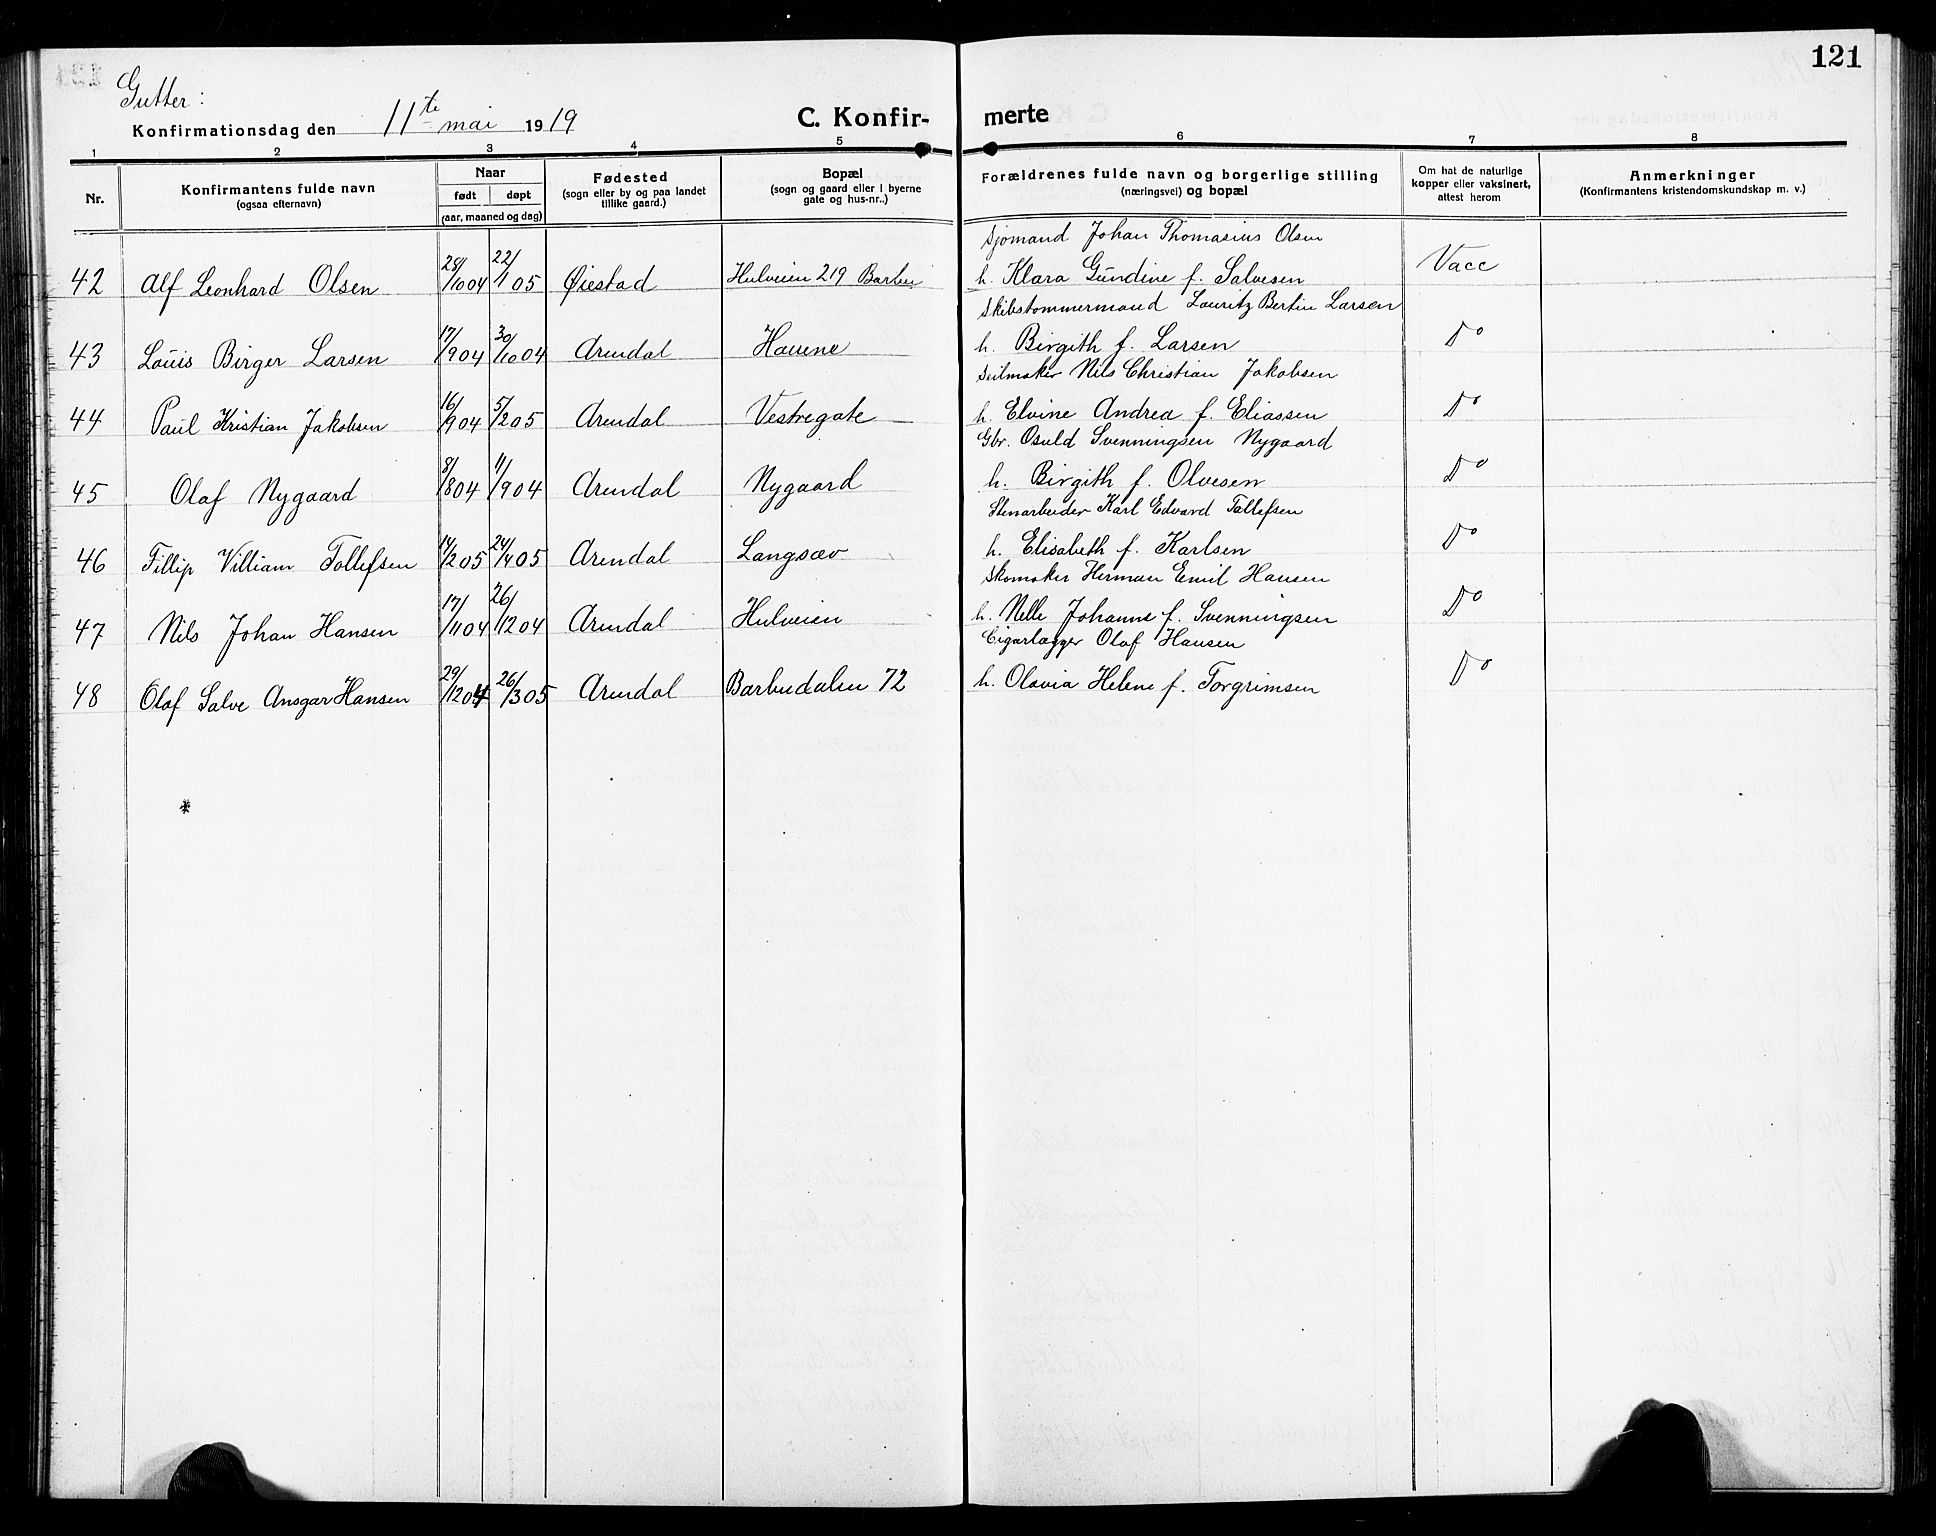 121
Gutter:
Konfirmationsdag den 11te mai 1919
C. Konfirmerte
1 2 3 4 5 6 7 8
Nr.
Konfirmantens fulde navn
(ogsaa efternavn)
Naar
født døpt
(aar, maaned og dag)
Fødested
(sogn eller by og paa landet
tillike gaard.)
Bopæl
(sogn og gaard eller i byerne
gate og hus-nr..)
Forældrenes fulde navn og borgerlige stilling
(næringsvei) og bopæl
Om hat de naturlige
kopper eller vaksinert,
attest herom
Anmerkninger
(Konfirmantens kristendomskundskap m. v.)
Sjømand Johan Thomasius Olsen
42 Alf Leonhard Olsen 28/10 04 22/1 05 Øiestad Hulveien 219 Barbu h. Klara Gundine f. Salvesen Vacc
Skibstømmermand Lauritz Bertin Larsen
43 Louis Birger Larsen 17/9 04 30/10 04 Arendal Havene h. Birgith f. Larsen Do
Seilmaker Nils Christian Jakobsen
44 Paul Kristian Jakobsen 16/9 04 5/2 05 Arendal Vestregate h. Elvine Andrea f. Eliassen Do
Gbr. Osuld Svenningsen Nygaard
45 Olaf Nygaard 8/8 04 11/9 04 Arendal Nygaard h. Birgith f. Olvesen Do
Stenarbeider Karl Edvard Tollefsen
46 Fillip Villiam Tollefsen 14/2 05 24/4 05 Arendal Langsæv h. Elisabeth f. Karlsen Do
Skomaker Herman Emil Hansen
47 Nils Johan Hansen 17/11 04 26/12 04 Arendal Hulveien h. Nelle Johanne f. Svenningsen Do
Cigarlægger Olaf Hansen
48 Olaf Salve Ansgar Hansen 29/12 04 26/3 05 Arendal Barbudalen 72 h. Olavia Helene f. Torgrimsen Do